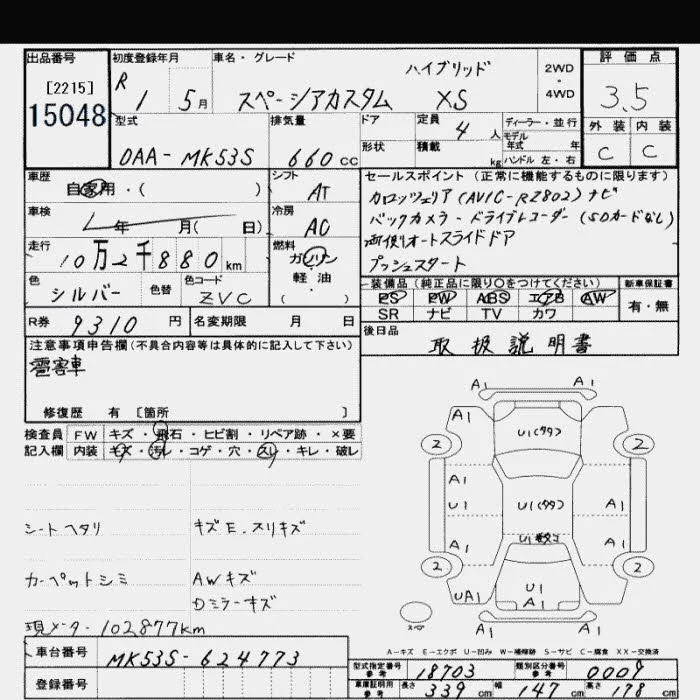 出品番号
[2215]
15048
初度登録年月
R 1 5月
車名・グレード
ハイブリッド
スペーシアカスタム XS
2WD
・
4WD
評価点
3.5
外装 内装
C C
型式
DAA-MK53S
排気量
660cc
ドア
形状
定員 4人
積載 kg
ディーラー・並行
モデル年式 年
ハンドル 左・右
車歴
自家用・( )
シフト
AT
車検
年 月( 日)
冷房
AC
走行
10万2千880km
燃料
ガソリン
軽油
( )
色
シルバー
色替
色コード
ZVC
R券 9310円
名変期限 月 日
セールスポイント(正常に機能するものに限ります)
カロッツェリア(AVIC-RZ802)ナビ
バックカメラ-ドライブレコーダー(SDカードなし)
両側オートスライドドア
プッシュスタート
装備品(純正品に限り○をつけてください)
新車保証書
PS PW ABS エアB AW
SR ナビ TV カワ
有・無
後日品
取扱説明書
注意事項申告欄(不具合内容等は具体的に記入して下さい)
雹害車
修復歴 有 [箇所 ]
検査員記入欄
FW キズ・飛石・ヒビ割・リペア跡・×要
内装 キズ・汚レ・コゲ・穴・スリ・キレ・破レ
シートヘタリ
キズE.スリキズ
カーペットシミ
AWキズ
Dミラーキズ
現メーター102877km
車台番号
MK53S-624773
登録番号
A1 A1
A1
U1(タタ)
2 2
A1
U1
U1(タタ)
A1
A1
A1
2 2
UA1
U1
A1
A1
A1 A1
スペア
A-キズ E-エクボ U-凹み W-補修跡 S-サビ C-腐食 XX-交換済
型式指定番号
参考
18703
類別区分番号
参考
0009
車庫証明用
参考
長さ 339cm
幅 147cm
高さ 178cm